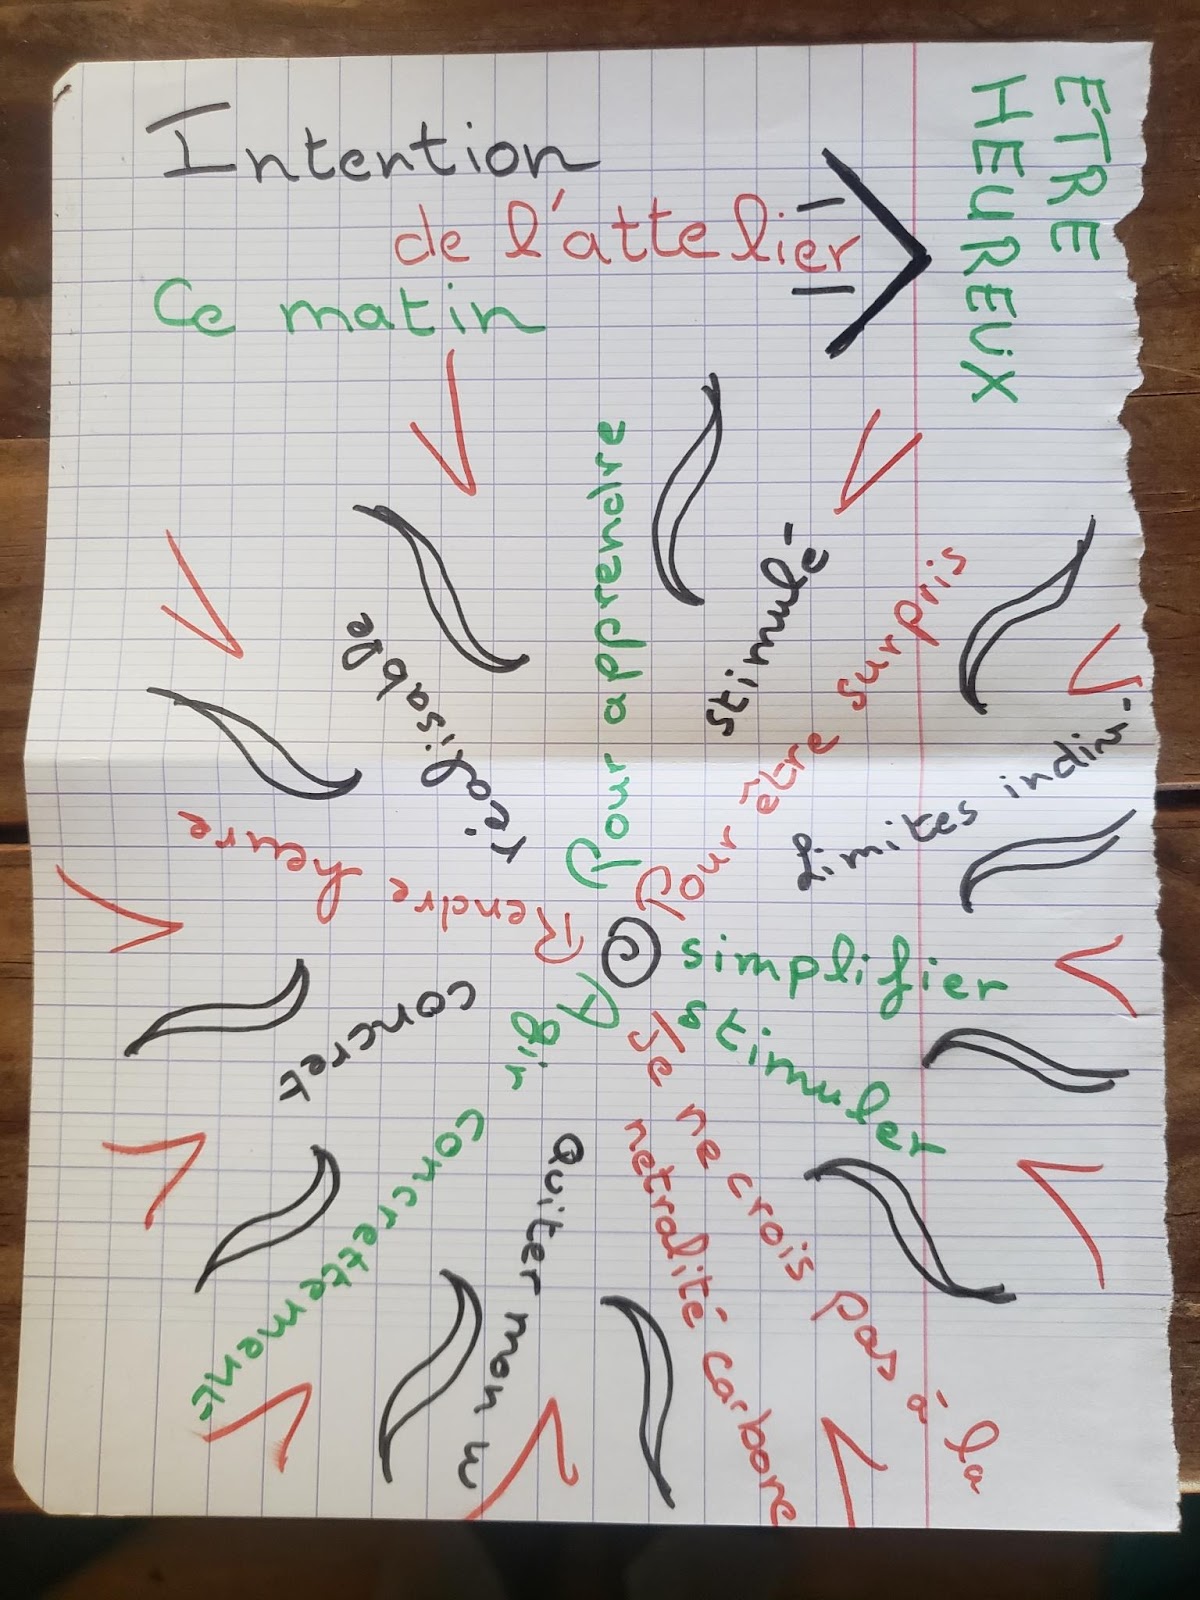 ETRE
HEUREUX
Intention
de l'attelier
Ce matin
Pour apprendre
stimulé-
Pour être surpris
Limites indiv-
simplifier
stimuler
Je ne crois pas à la
netralité carbone
Quiter mon
Agir
concrettement
concret
Rendre heure
réalisable